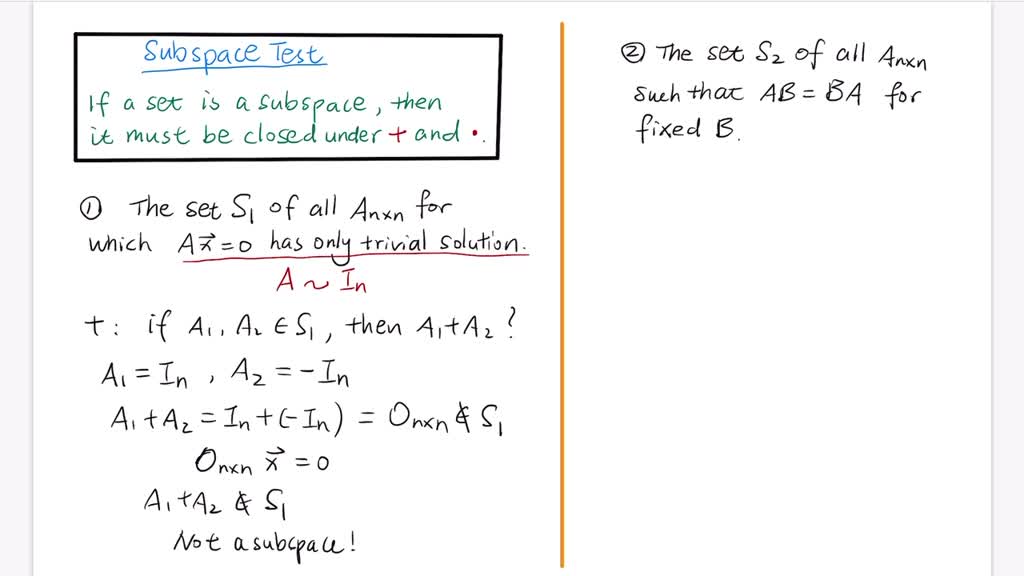 Subspace Test
If a set is a subspace, then
it must be closed under + and •.
① The set S₁ of all Aₙₓₙ for
which Ax⃗=0 has only trivial solution.
A ~ Iₙ
+: if A₁, A₂ ∈ S₁, then A₁+A₂?
A₁ = Iₙ, A₂ = -Iₙ
A₁+A₂ = Iₙ+(-Iₙ) = Oₙₓₙ ∉ S₁
Oₙₓₙ x⃗ = 0
A₁+A₂ ∉ S₁
Not a subspace!
② The set S₂ of all Aₙₓₙ
such that AB = BA for
fixed B.